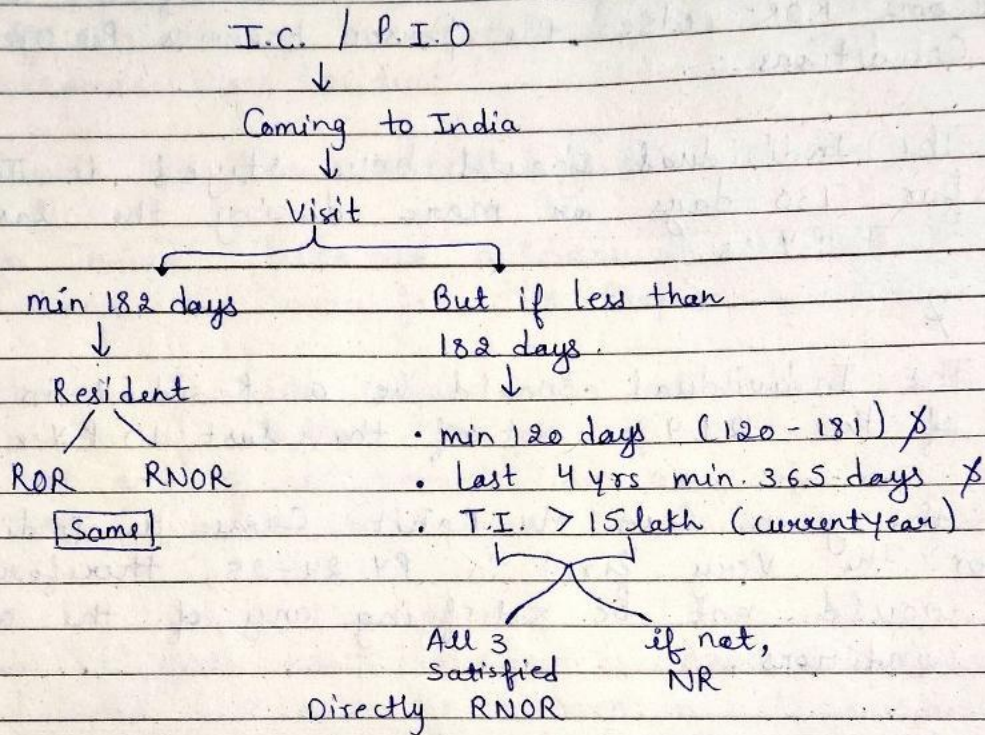 I.C. / P.I.O
↓
Coming to India
↓
Visit
min 182 days
↓
Resident
ROR RNOR
Same
But if less than
182 days.
↓
• min 120 days (120 - 181) &
• Last 4 yrs min. 365 days &
• T.I. > 15 lakh (current year)
All 3
Satisfied
Directly RNOR
if not,
NR